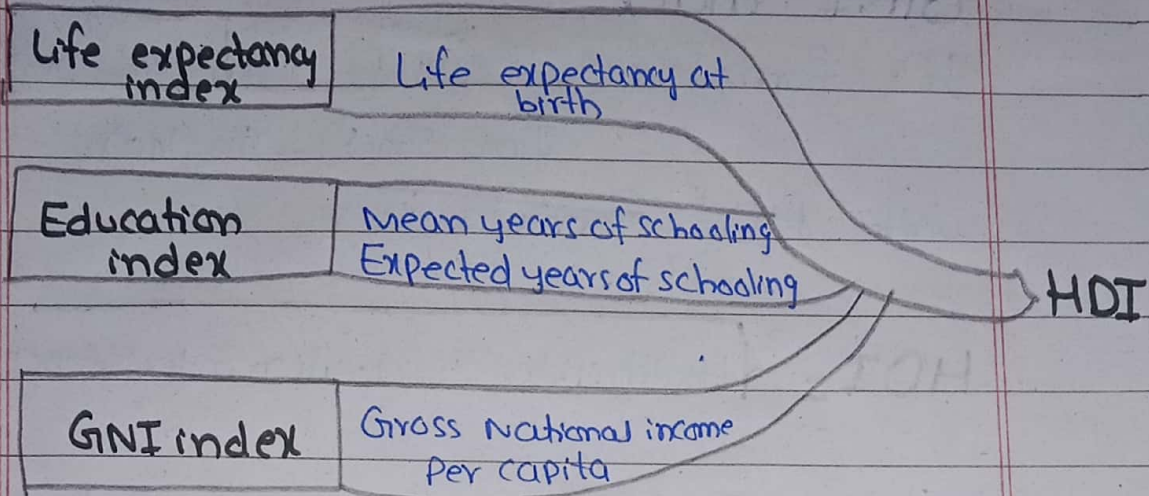 Life expectancy
index
Life expectancy at
birth
Education
index
Mean years of schooling
Expected years of schooling
HDI
GNI index
Gross National income
Per capita